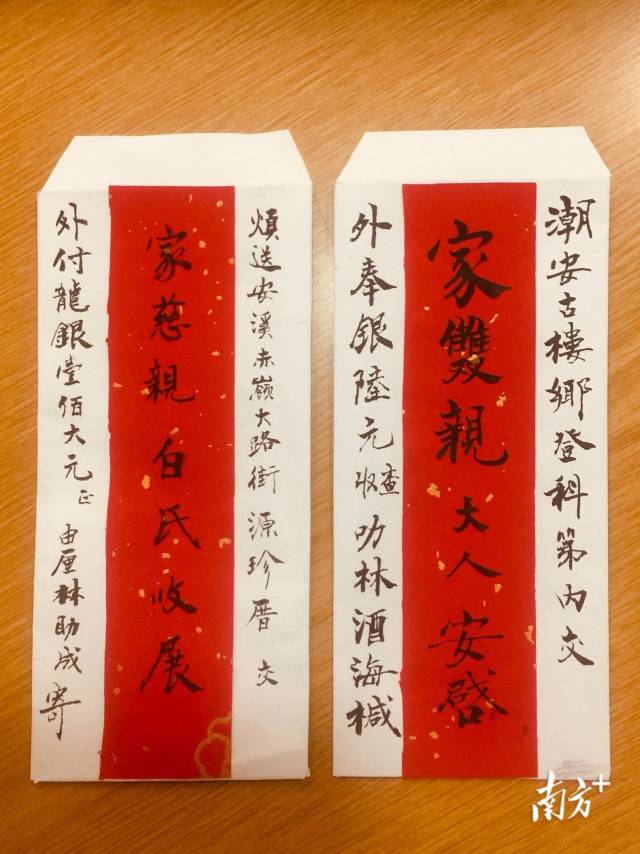 潮安古樓鄉登科第内交
家雙親大人安啓
外奉銀陸元查收 叻林酒海槭
煩送安溪赤嶺大路街源珍厝交
家慈親白氏收展
外付龍銀壹佰大元正 由厘林助成寄
南方+